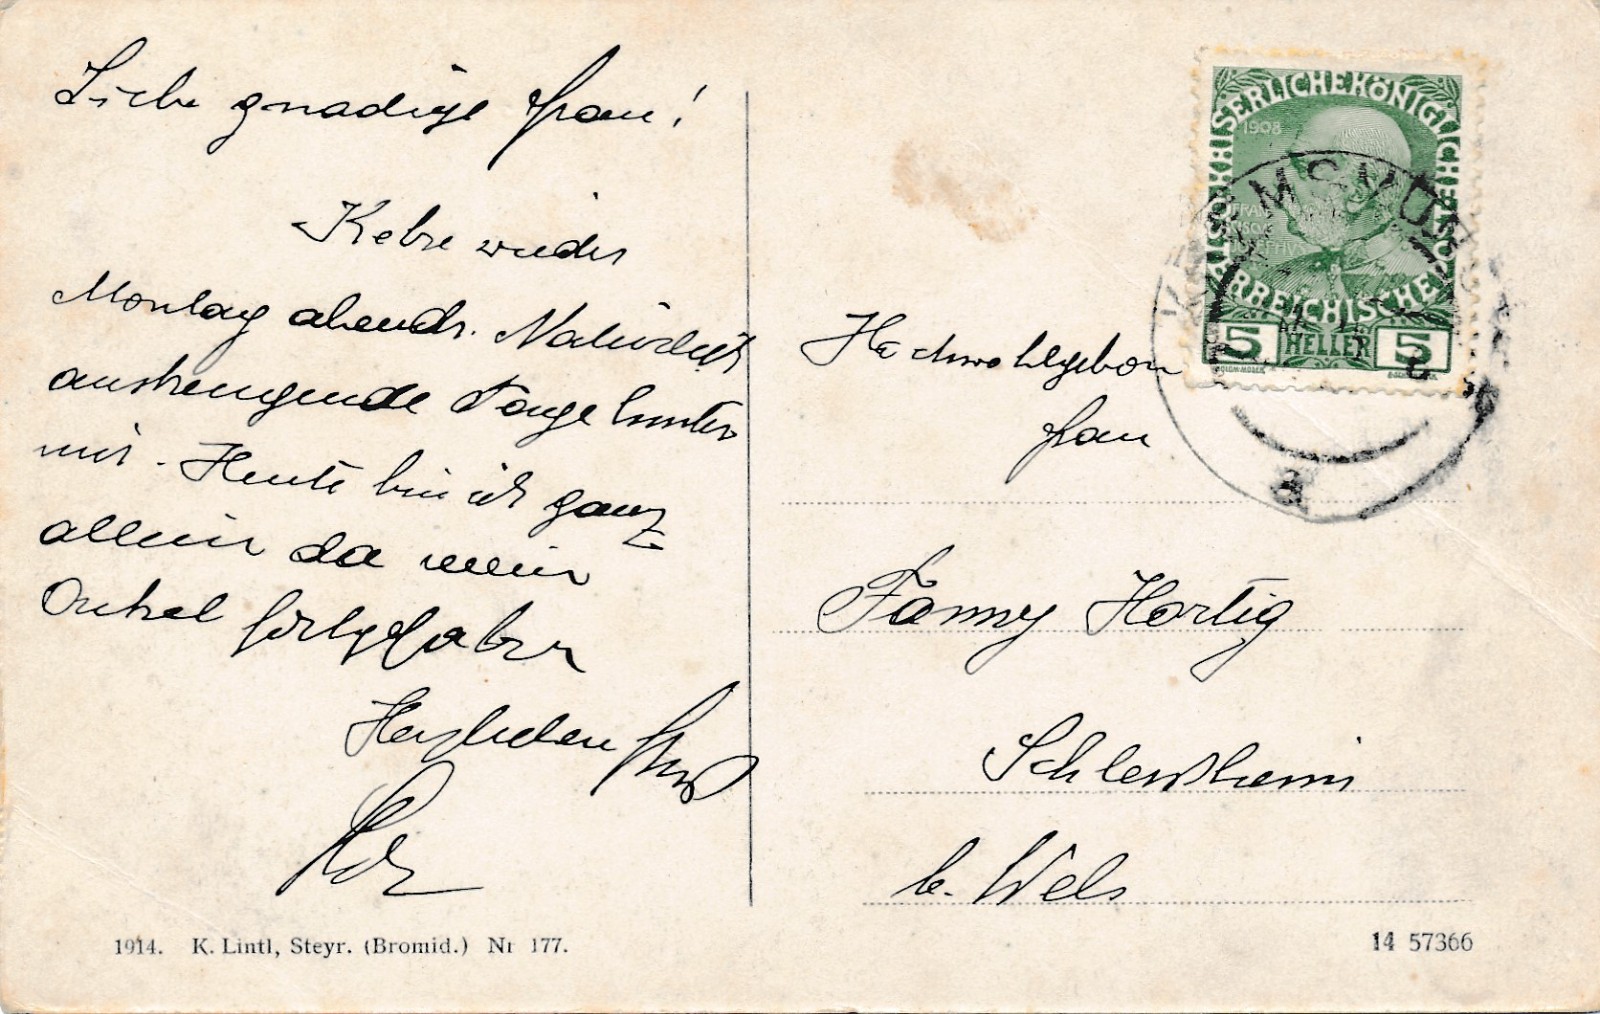 Liebe gnädige Frau!
Kehre wieder
Montag abends. Natürlich
anstrengende Tage hinter
mir. Heute bin ich ganz
allein da mein
Onkel fortgefahren
Herzlichen Gruß
1914. K. Lintl, Steyr. (Bromid.) Nr 177.
KAISERLICHE KÖNIGLICHE ÖSTERREICHISCHE
1908
FRANZ
5 HELLER 5
KREMSMÜN
a
Hochwohlgeboren
Frau
Fanny Hartig
Schleissheim
b. Wels
14 57366